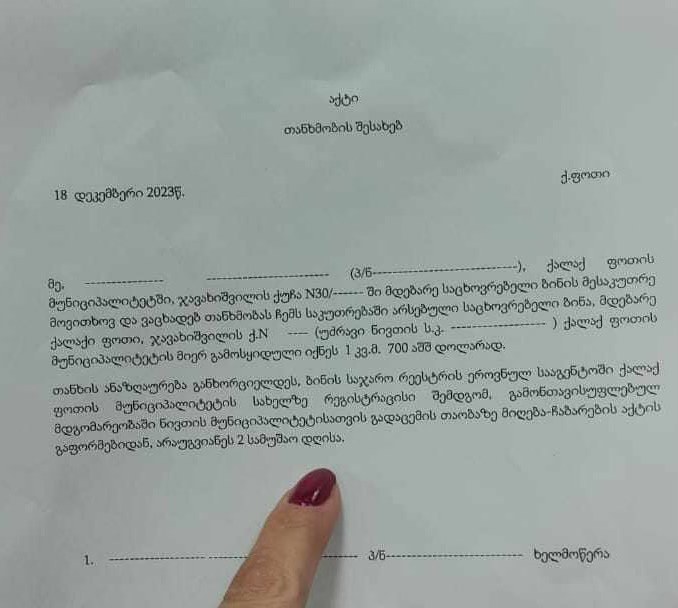 აქტი
თანხმობის შესახებ
18 დეკემბერი 2023წ.
ქ.ფოთი
მე, --------------- ----------------------- (პ/ნ---------------------------), ქალაქ ფოთის
მუნიციპალიტეტში, ჯავახიშვილის ქუჩა N30/------ ში მდებარე საცხოვრებელი ბინის მესაკუთრე
მოვითხოვ და ვაცხადებ თანხმობას ჩემს საკუთრებაში არსებული საცხოვრებელი ბინა, მდებარე
ქალაქი ფოთი, ჯავახიშვილის ქ.N ---- (უძრავი ნივთის ს.კ. ------------------ ) ქალაქ ფოთის
მუნიციპალიტეტის მიერ გამოსყიდული იქნეს 1 კვ.მ. 700 აშშ დოლარად.
თანხის ანაზღაურება განხორციელდეს, ბინის საჯარო რეესტრის ეროვნულ სააგენტოში ქალაქ
ფოთის მუნიციპალიტეტის სახელზე რეგისტრაციისი შემდგომ, გამონთავისუფლებულ
მდგომარეობაში ნივთის მუნიციპალიტეტისათვის გადაცემის თაობაზე მიღება-ჩაბარების აქტის
გაფორმებიდან, არაუგვიანეს 2 სამუშაო დღისა.
1. ------------------ --------------- პ/ნ-------------------------- ხელმოწერა